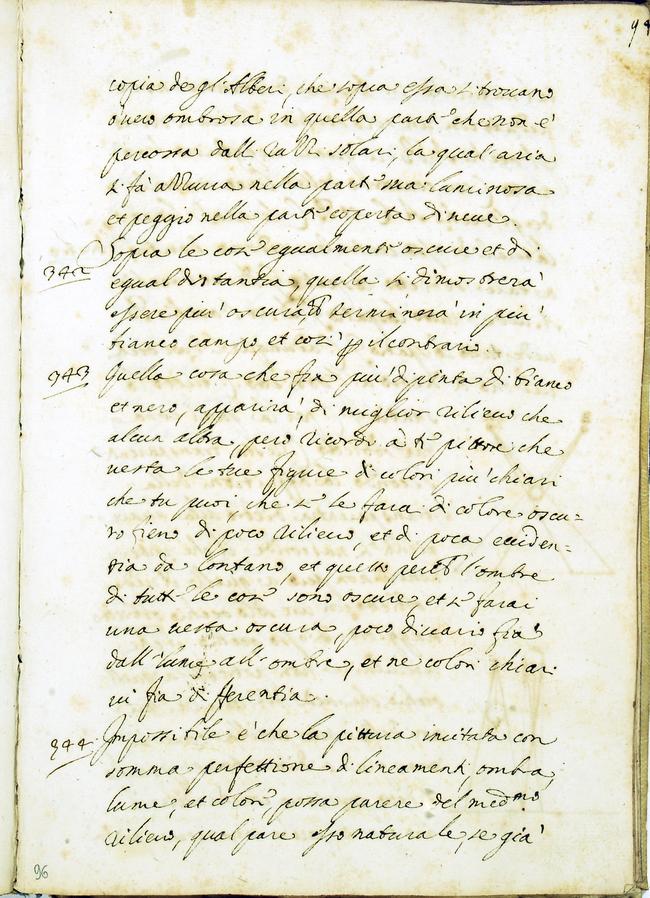 copia degl'Alberi, che sopra essa si trovano
overo ombrosa in quella parte che non è
percossa dalli razzi solari, la qual'aria
si fà azzurra nella parte sua luminosa
et peggio nella parte coperta di neve.
342 Sopra le cose egualmente oscure et di
egual distantia, quella si dimostrera'
essere piu' oscura, terminera' in piu'
bianco campo, et cosi' p il contrario.
343 Quella cosa che fia piu' dipinta di bianco
et nero, apparira', di miglior rilievo che
alcun altra, pero ricordo à te pittore che
vesta le tue figure di colori piu' chiari
che tu puoi, che se le farai di colore oscu=
ro fieno di poco rilievo, et di poca eviden=
tia da lontano, et questo perch l'ombre
di tutte le cose sono oscure, et se farai
una vesta oscura, poco divario fia'
dall'lume all'ombre, et ne colori chiari
vi fia differentia.
344 Impossibile è che la pittura imitata con
somma perfettione di lineamenti, ombra,
lume, et colore, possa parere del medmo
rilievo, qual pare esso naturale, se già
96